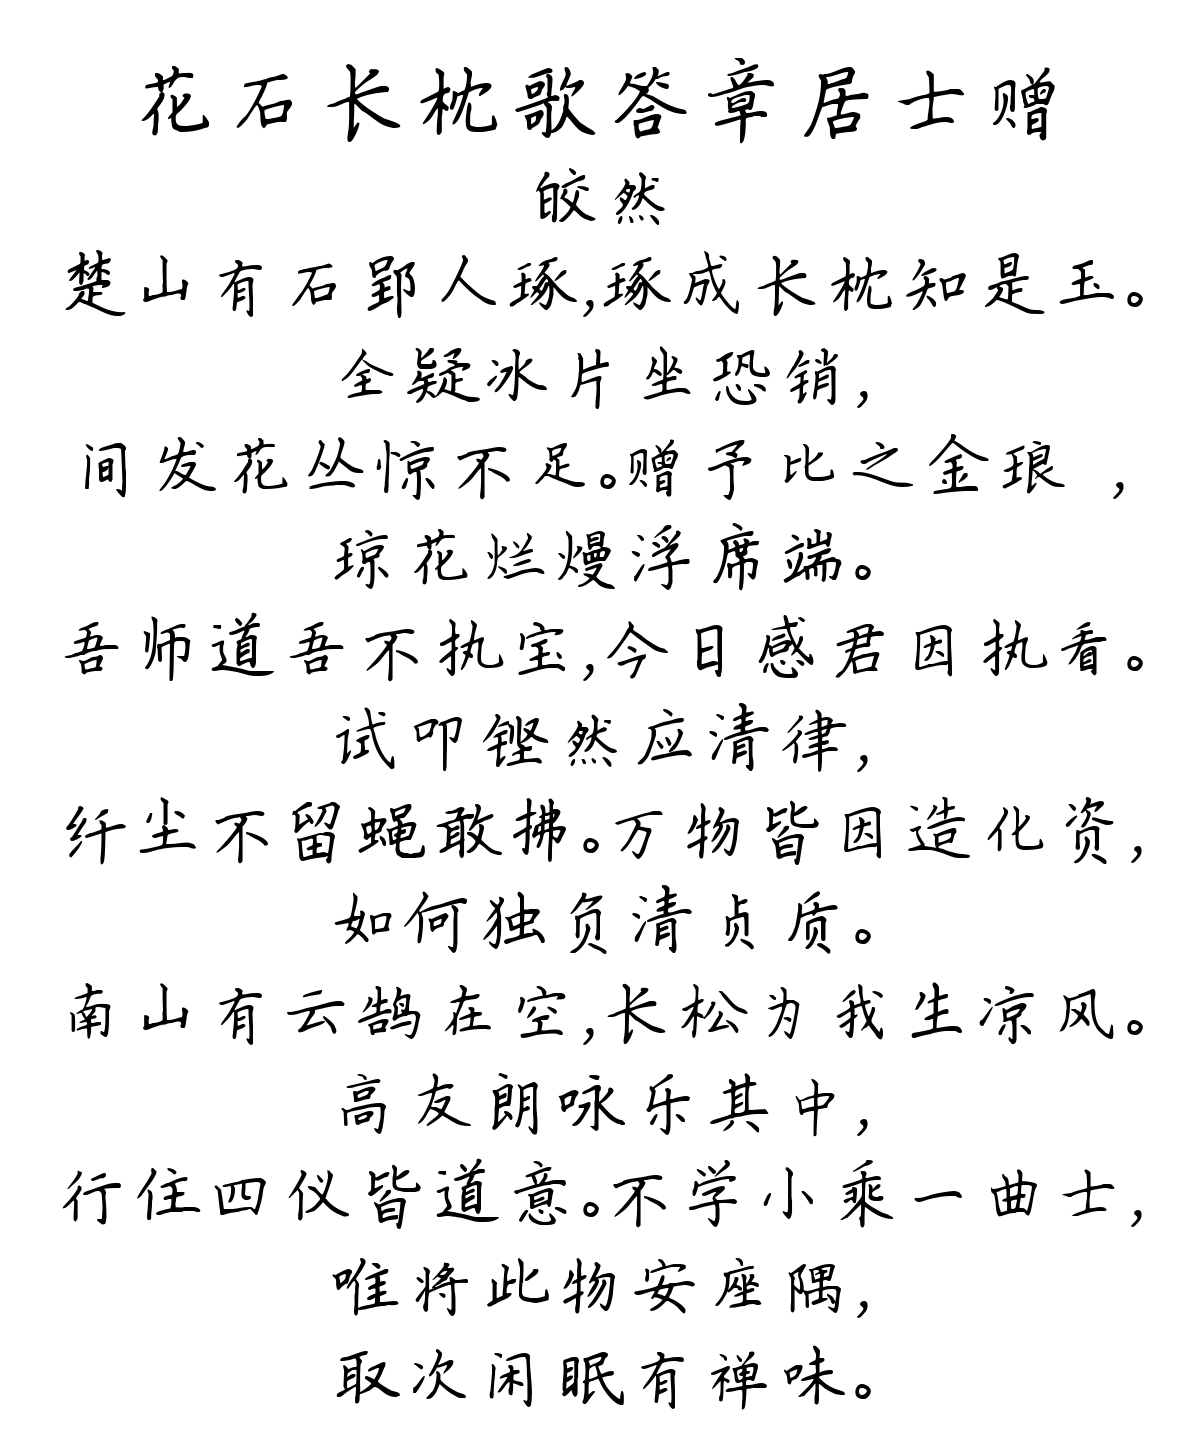 花石长枕歌答章居士赠
皎然
楚山有石郢人琢,琢成长枕知是玉。
全疑冰片坐恐销,
间发花丛惊不足。赠予比之金琅 ,
琼花烂熳浮席端。
吾师道吾不执宝,今日感君因执看。
试叩铿然应清律,
纤尘不留蝇敢拂。万物皆因造化资,
如何独负清贞质。
南山有云鹄在空,长松为我生凉风。
高友朗咏乐其中,
行住四仪皆道意。不学小乘一曲士,
唯将此物安座隅,
取次闲眠有禅味。